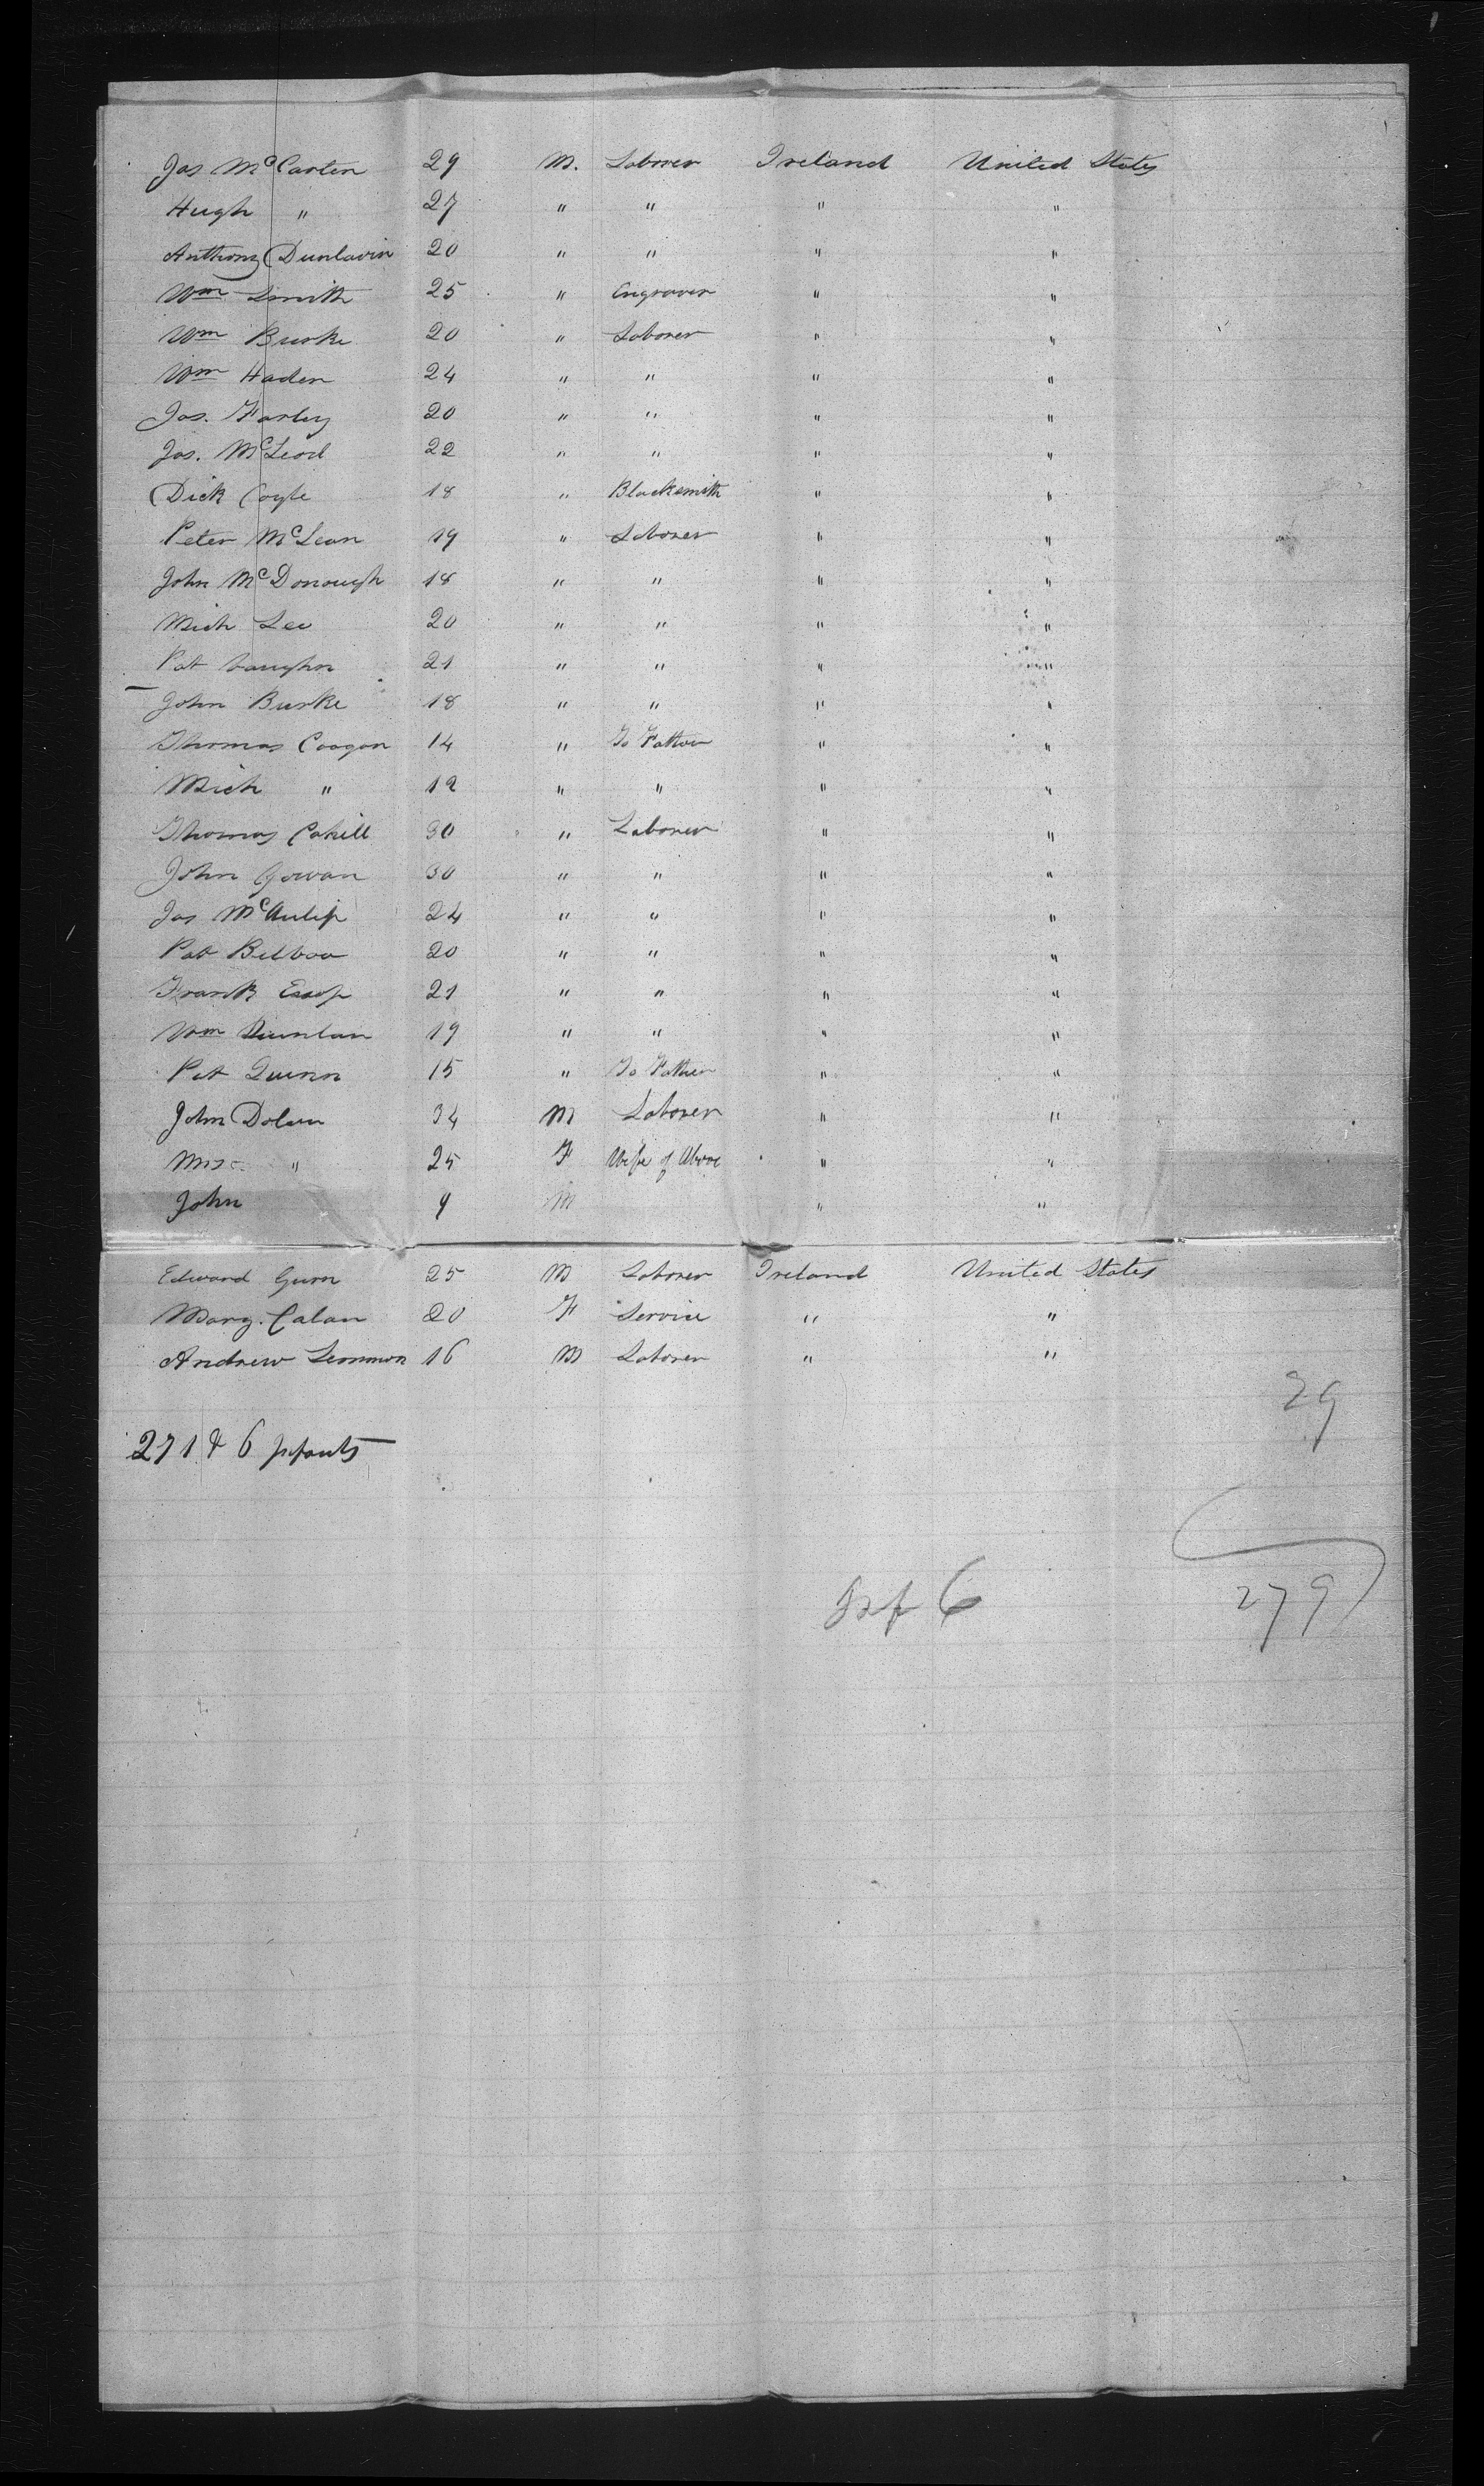 Jas McCarten 29 M. Laborer Ireland United States
Hugh " 27 " " " "
Anthony Dunlavin 20 " " " "
Wm Smith 25 " Engraver " "
Wm Burke 20 " Laborer " "
Wm Haden 24 " " " "
Jas. Farley 20 " " " "
Jas. McLeod 22 " " " "
Dick Coyle 18 " Blacksmith " "
Peter McLean 19 " Laborer " "
John McDonough 18 " " " "
Mich Lee 20 " " " "
Pat Vaughn 21 " " " "
John Burke 18 " " " "
Thomas Coogan 14 " To Father " "
Mich " 12 " " " "
Thomas Cahill 30 " Laborer " "
John Gowan 30 " " " "
Jas McAulip 24 " " " "
Pat 20 " " " "
Frank 21 " " " "
Wm 19 " " " "
Pat Quinn 15 " To Father " "
John Dolan 34 M Laborer " "
Mrs " 25 F Wife of Above " "
John 9 M " "
Edward Gunn 25 M Laborer Ireland United States
Marg. Calan 20 F Service " "
Andrew Lemmon 16 M Laborer " "
29
271 & 6 Infants
Inf 6
279